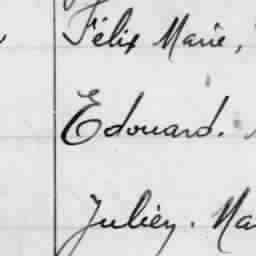 Félix Marie,
Edouard.
Julien. Ma